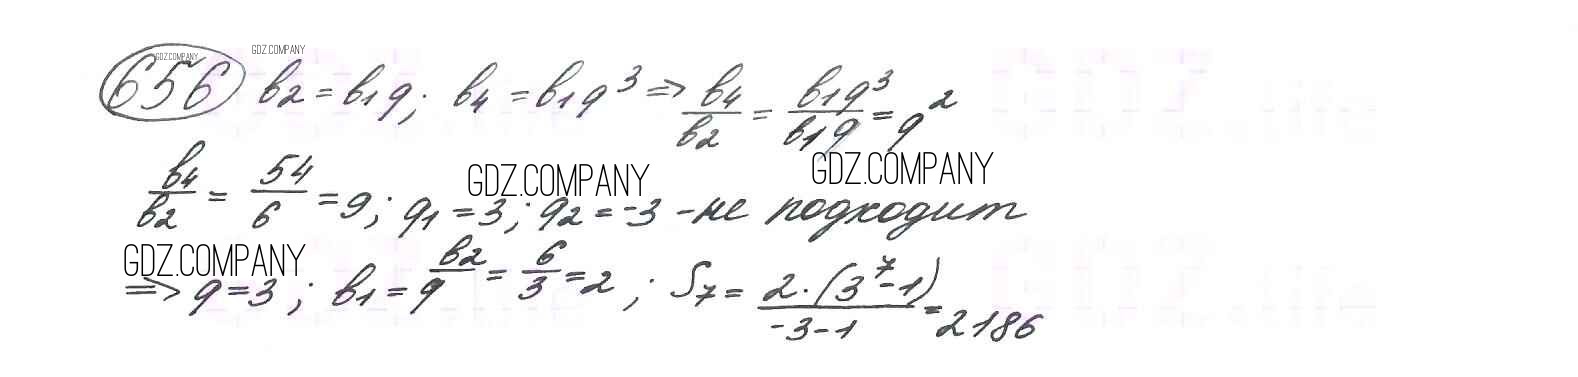 GDZ.COMPANY
GDZ.COMPANY
656 b₂ = b₁q; b₄ = b₁q³ => b₄/b₂ = b₁q³/b₁q = q²
GDZ.COMPANY GDZ.COMPANY
b₄/b₂ = 54/6 = 9; q₁ = 3; q₂ = -3 - не подходит
GDZ.COMPANY
=> q = 3; b₁ = b₂/q = 6/3 = 2; S₇ = 2·(3⁷-1)/-3-1 = 2186